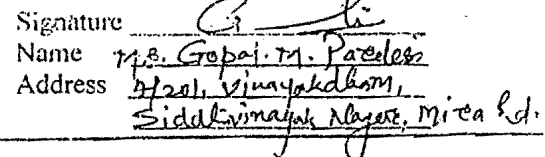 Signature
Name Gopal. M.
Address 4/201, Vinayakdham,
Siddhivinayak Nagar, Mira Rd.